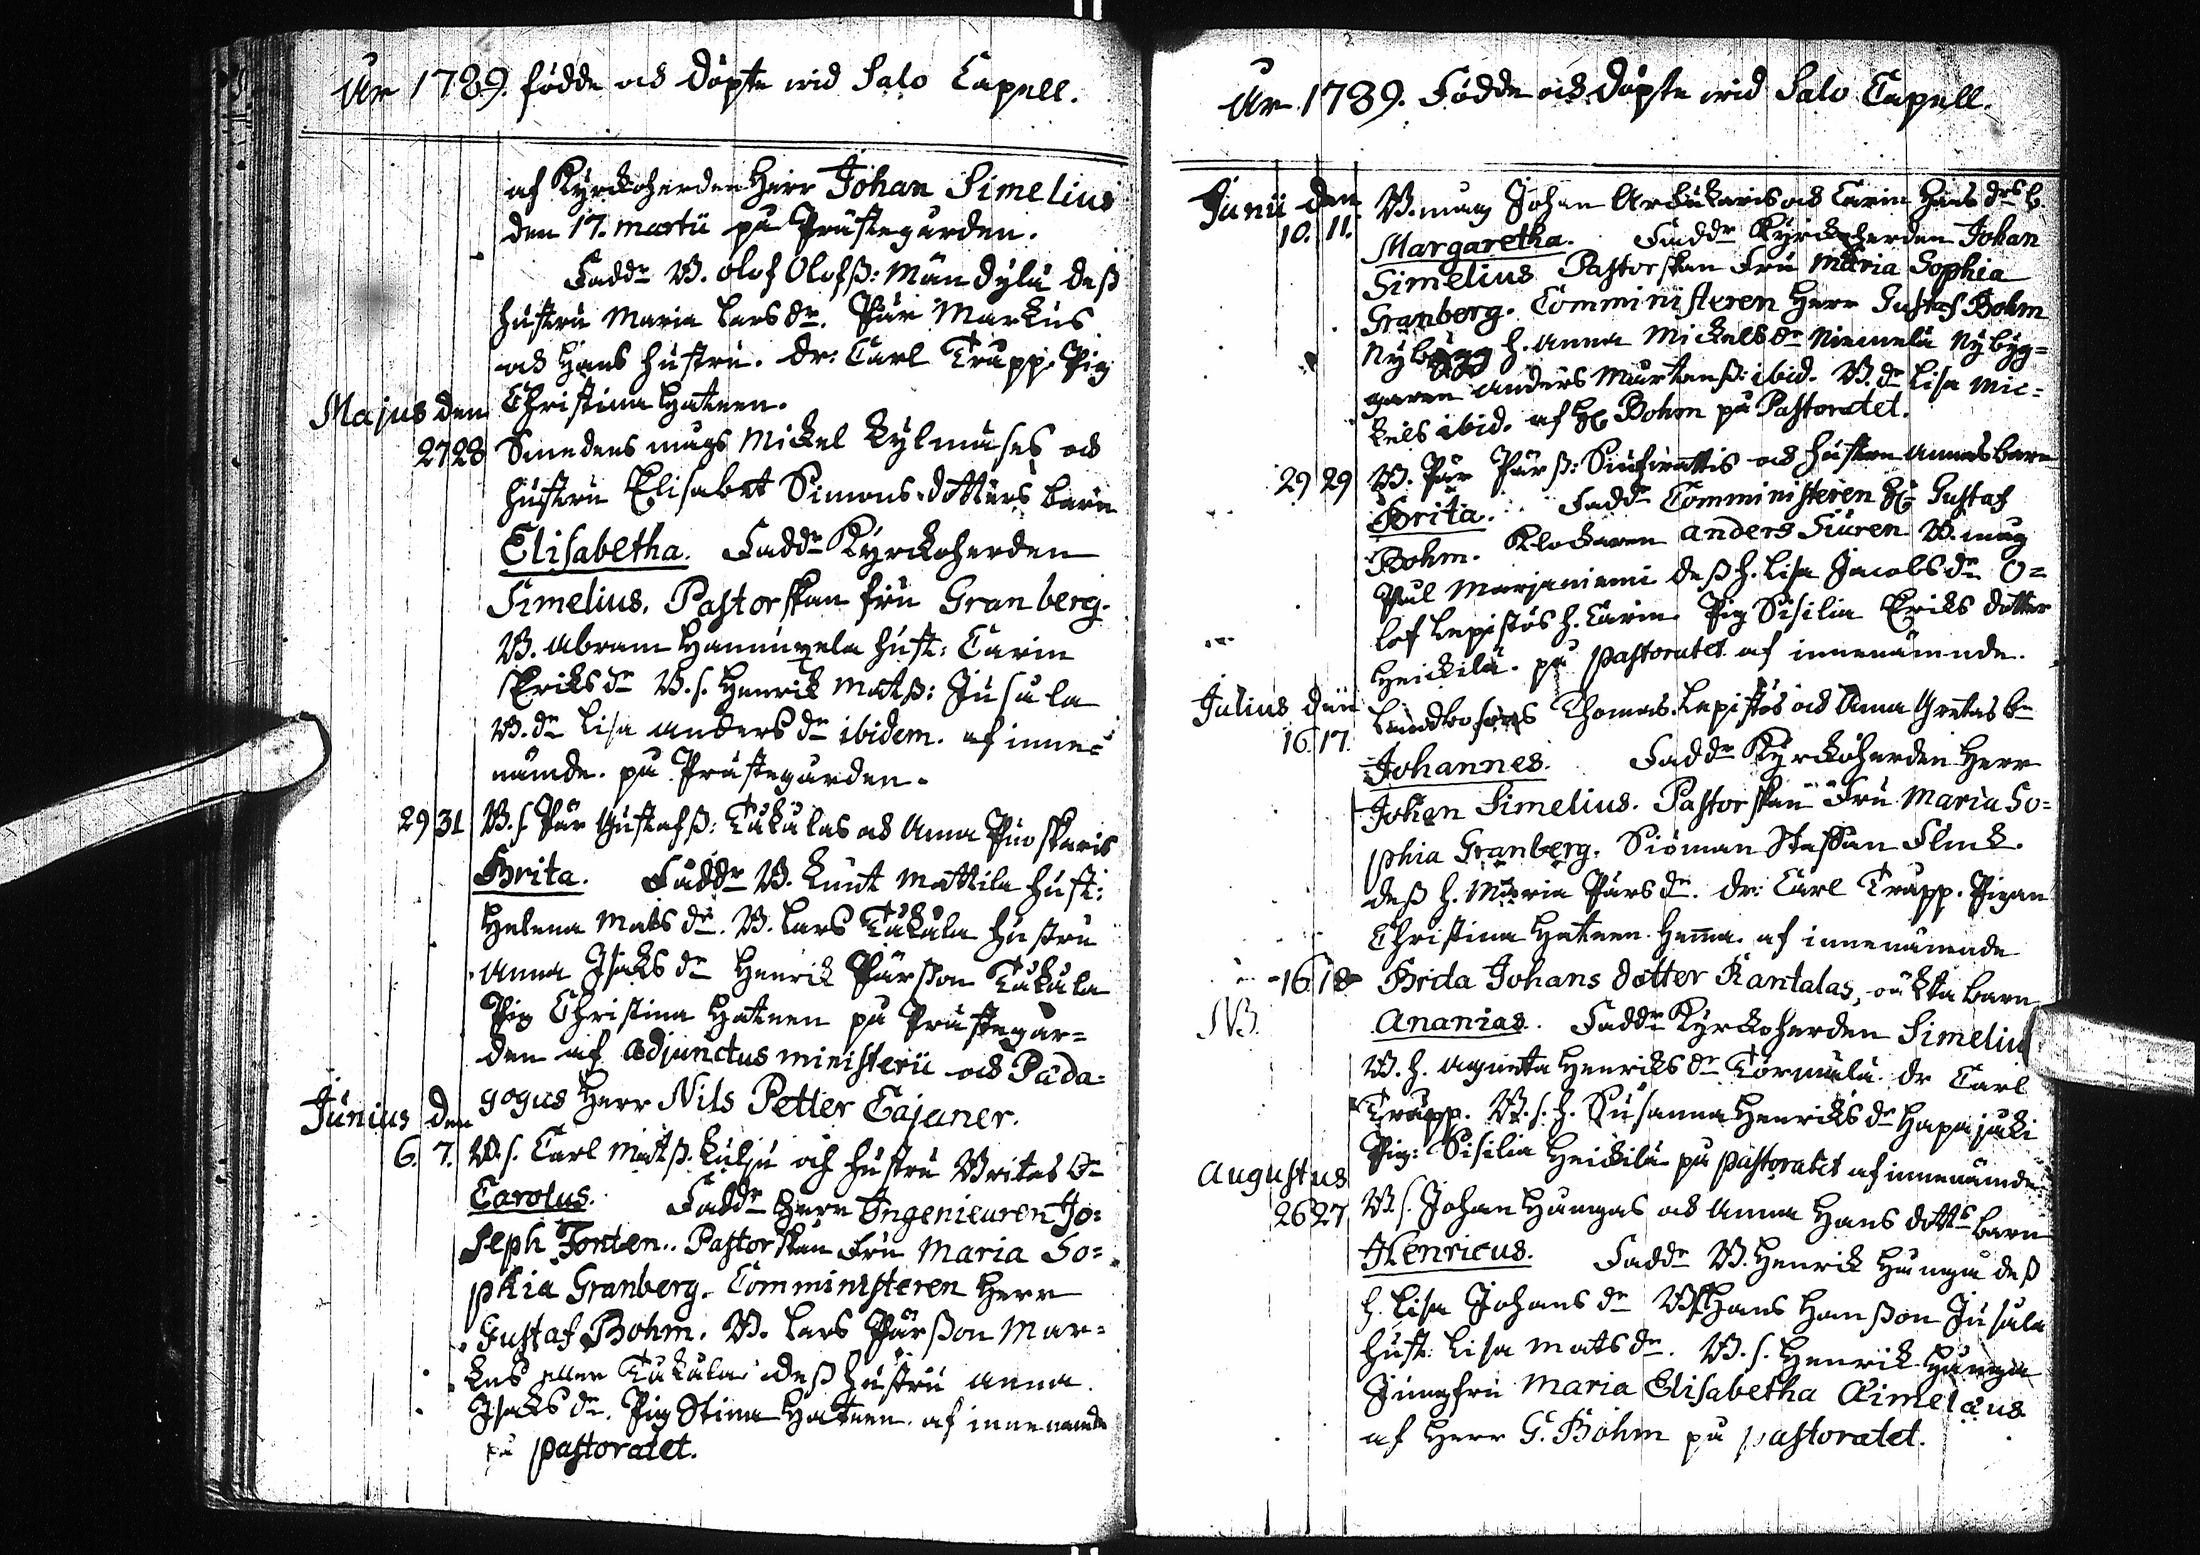 År 1789. födde och döpte vid Salo Capell.
af Kyrckoherden Herr Johan Simelius
den 17. martii på Prästegården.
Faddr B. Olof Olofss: Mändylä dess
hustru Maria Larsdr. Pär Markus
och Hans hustru. dr: Carl Trapp. Pig
Christina Hatuen.
Majus den
27 28 Smedens mågs Mickel Kylmäses och
hustru Elisabet Simons-dotters barn
Elisabetha. Faddr Kyrckoherden
Simelius. Pastorskan fru Granberg.
B. Abram hust: Carin
Eriksdr B.s. Henrik Matss: Jusula
B.dr Lisa Andersdr ibidem. af inne-
nämde. på Prästegården.
29 31 B.s. Pär Gustafss: Tukulas och Anna
Brita. Faddr B. Knut Mattila hust:
Helena Matsdr. B. Lars Tukula hustru
Anna Isaksdr Henrik Pärsson Tukula
Pig Christina Hatuen på Prästegår-
den af Adjunctus ministerii och Päda-
gogus Herr Nils Petter Cajaner.
Junius den
6. 7. B.s. Carl Matss. Kulju och hustru Britas Br
Carolus. Faddr Herr Ingenieuren Jo-
seph Fonten.. Pastorskan Fru Maria So-
phia Granberg. Comministeren Herr
Gustaf Bohm. B. Lars Pärsson Mar-
kus eller Tukula dess hustru Anna
Isaksdr. Pig Stina Hatuen. af innenämde
på pastoratet.
År 1789. Födde och döpte vid Salo Capell.
Junii den
10. 11. B.måg Johan och Carin Hansdrs b.
Margaretha. Faddr Kyrckoherden Johan
Simelius Pastorskan Fru Maria Sophia
Granberg. Comministeren Herr Gustaf Bohm
Nybygg h. Anna Mickelsdr Niemelä Nybyg-
garen Anders Mårtenss: ibid. B.dr Lisa Mic-
kels ibid. af Hr Bohm på Pastoratet.
29 29 B. Pär Pärss: och hustru Annas barn
Brita. Faddr Comministeren Hr Gustaf
Bohm. Klockaren Anders Siuren B. måg
Pål Marjaniemi dess h. Lisa Jacobsdr O-
lof Lepistös h. Carin. Pig Sisilia Eriks dotter
Heickilä. på pastoratet af innenämnde.
Julius den
16 17. Landbo Thomas Lepistös och Anna Gretas br
Johannes. Faddr Kyrckoherden Herr
Johan Simelius. Pastorskan Fru Maria So-
phia Granberg. Siöman Staffan Flink.
dess h. Maria Pärsdr. dr: Carl Trapp. Pigan
Christina Hatuen Hema. af innenämnde
16 18 Brita Johans dotter Rantalas, oäkta barn
NB. Ananias. Faddr Kyrckoherden Simelius
B. h. Agneta Henriksdr Törmälä. dr Carl
Trapp. B.s.h. Susanna Henriksdr Hapajuki
Pig: Sisilia Heickilä på pastoratet af innenämde
Augustus
26 27 B.s. Johan Humgas och Anna Hans dotters barn
Henricus. Faddr B. Henrik Humga dess
h. Lisa Johansdr B.s. Hans Hansson Jusula
hust: Lisa Matsdr. B.s. Henrik Humga
Jungfru Maria Elisabetha Aimelæus
af Herr G. Bohm på pastoratet.